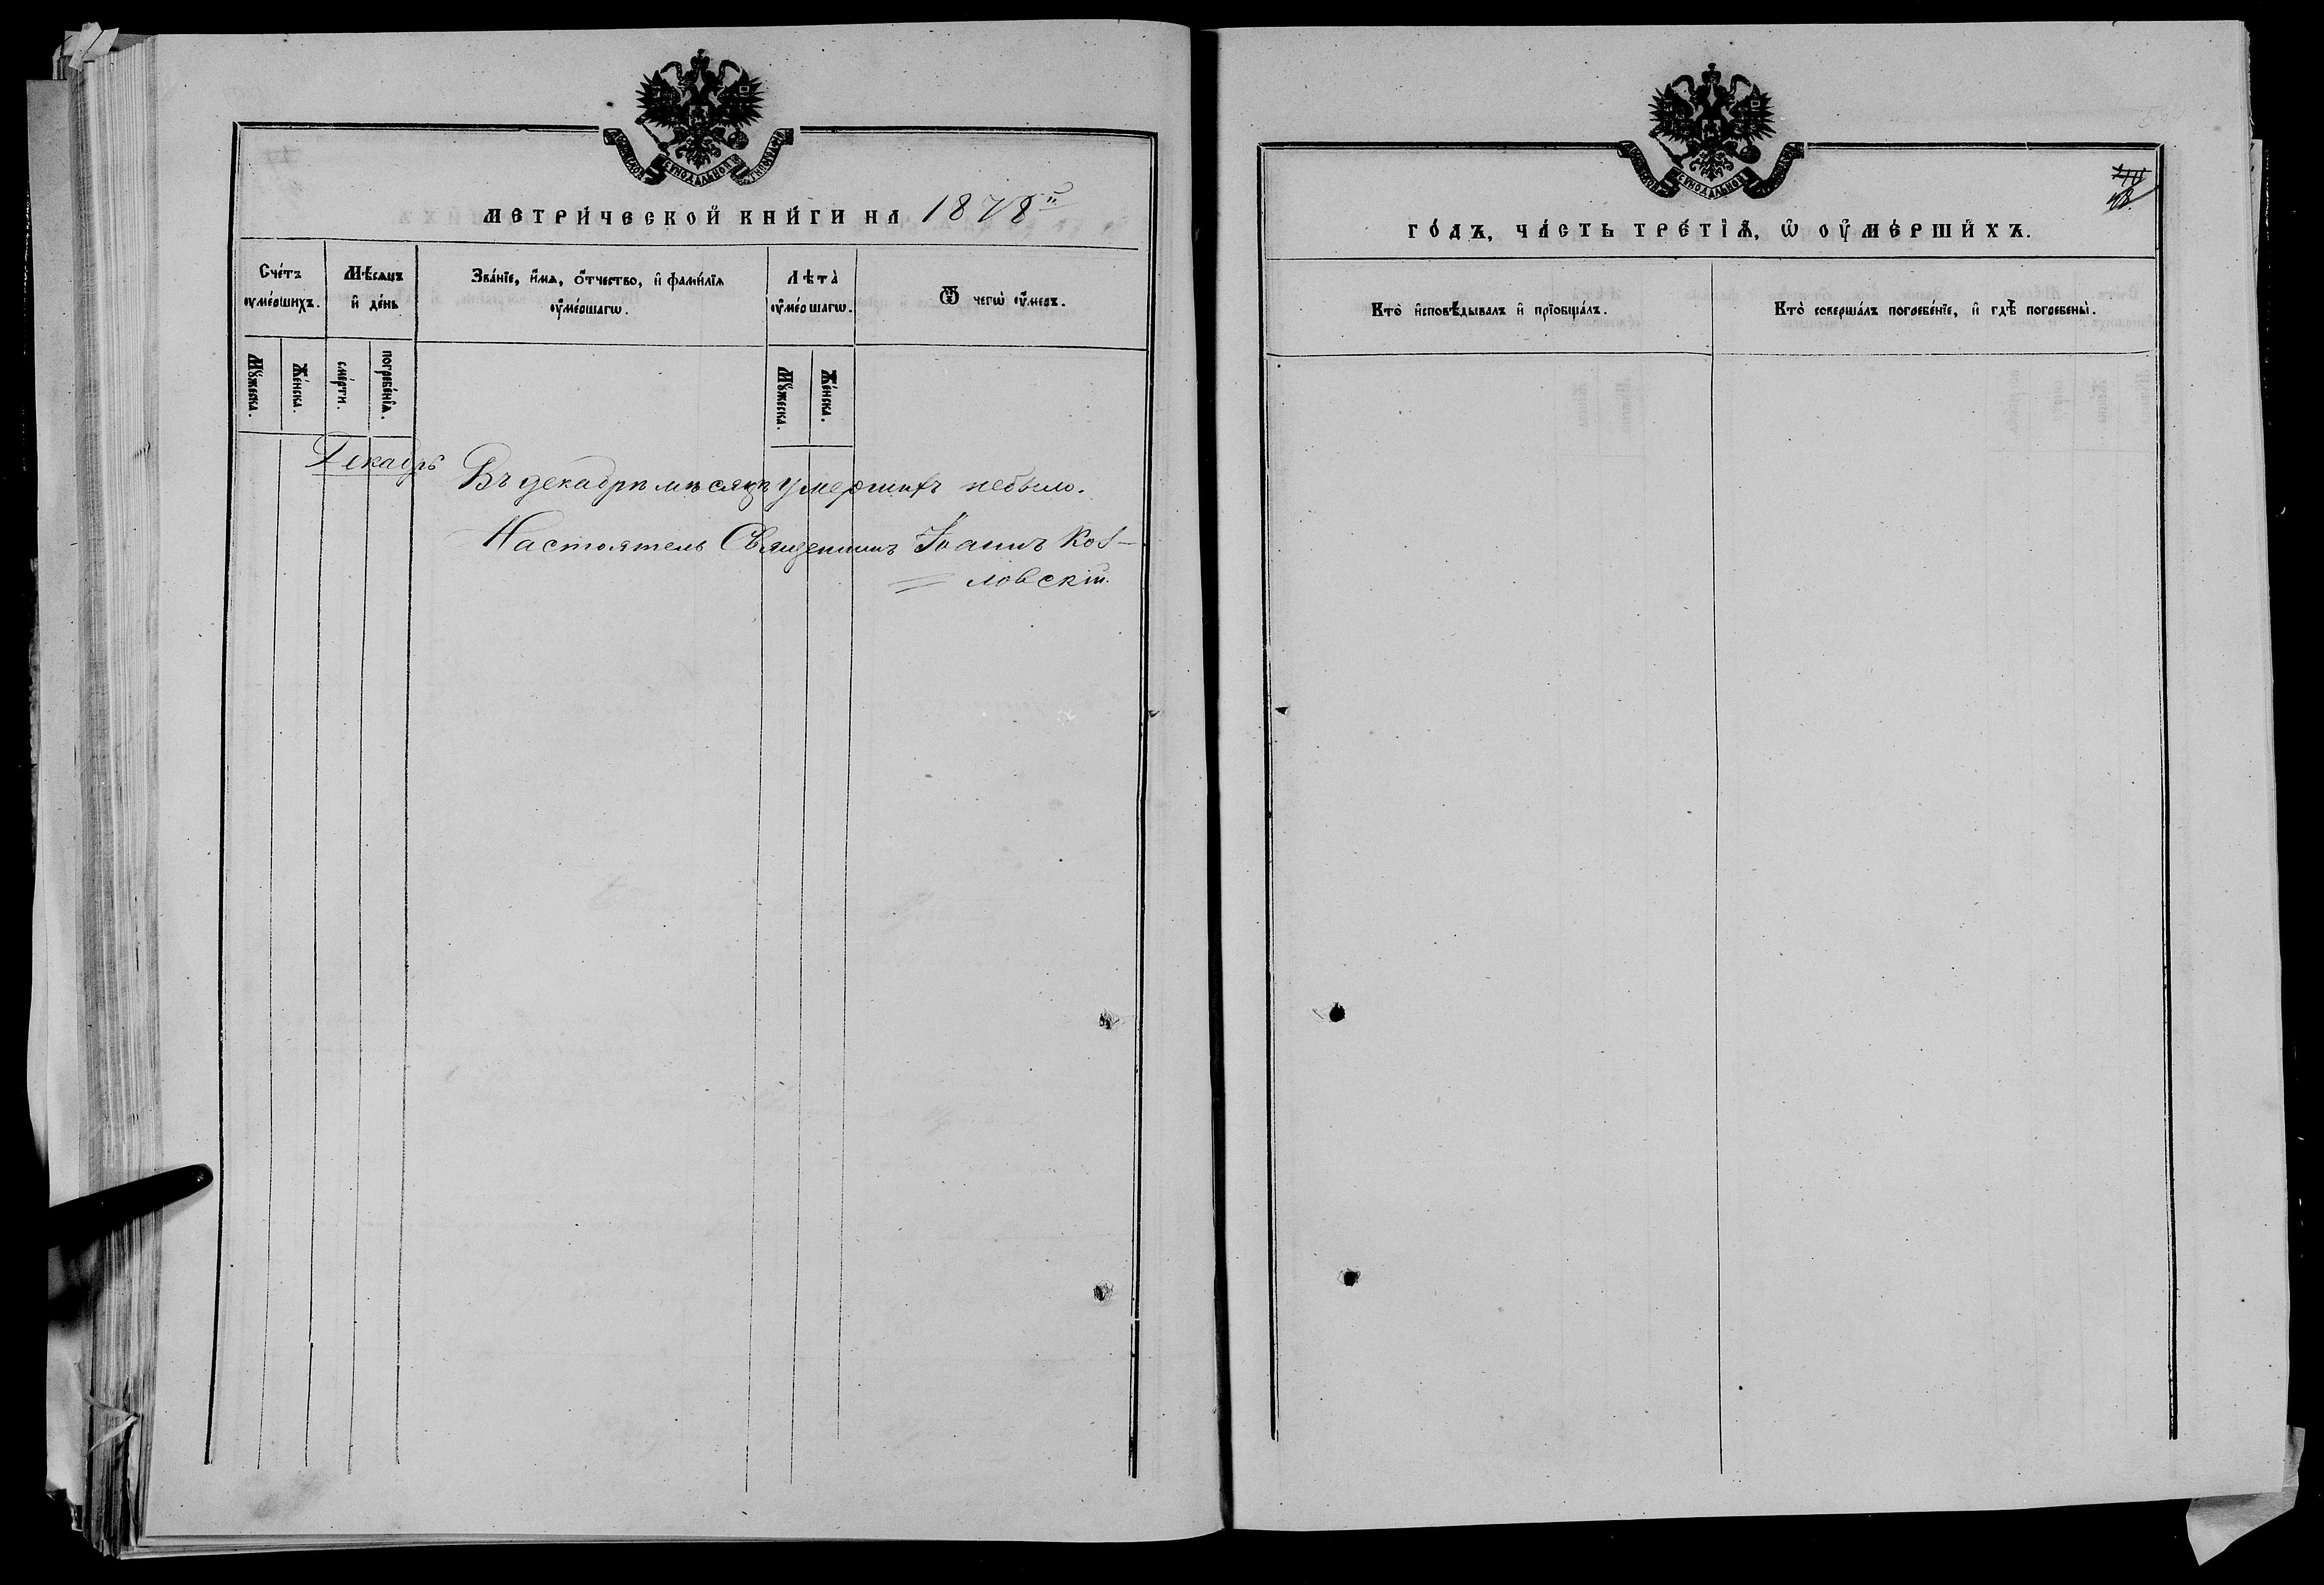 МЕТРИ́ЧЕСКОЙ КНИ́ГИ НА 1878й
Сче́тъ ᲂу҆ме́ршихъ.
Мѣ́сѧцъ и҆ де́нь
Зва́нїе, и҆́мѧ, ѻ҆́тчество, и҆ фами́лїѧ ᲂу҆ме́ршагѡ.
Лѣта̀ ᲂу҆ме́ршагѡ.
Ѿ чегѡ̀ ᲂу҆́меръ.
Мꙋ́жеска.
Же́нска.
сме́рти.
погребе́нїѧ.
Мꙋ́жеска.
Же́нска.
Декабрь
Въ декабрѣ мѣсяцѣ умершихъ небыло.
Настоятель Священникъ Іоаннъ Коз-
= ловскій.
СѴНОДАЛЬНОЙ
ГО́ДЪ, ЧА́СТЬ ТРЕ́ТЇѦ, Ѡ҆ ОУ҆МЕ́РШИХЪ.
Кто̀ и҆сповѣ́дывалъ и҆ прїобща́лъ.
Кто̀ соверша́лъ погребе́нїе, и҆ гдѣ̀ погребены̀.
СѴНОДАЛЬНОЙ